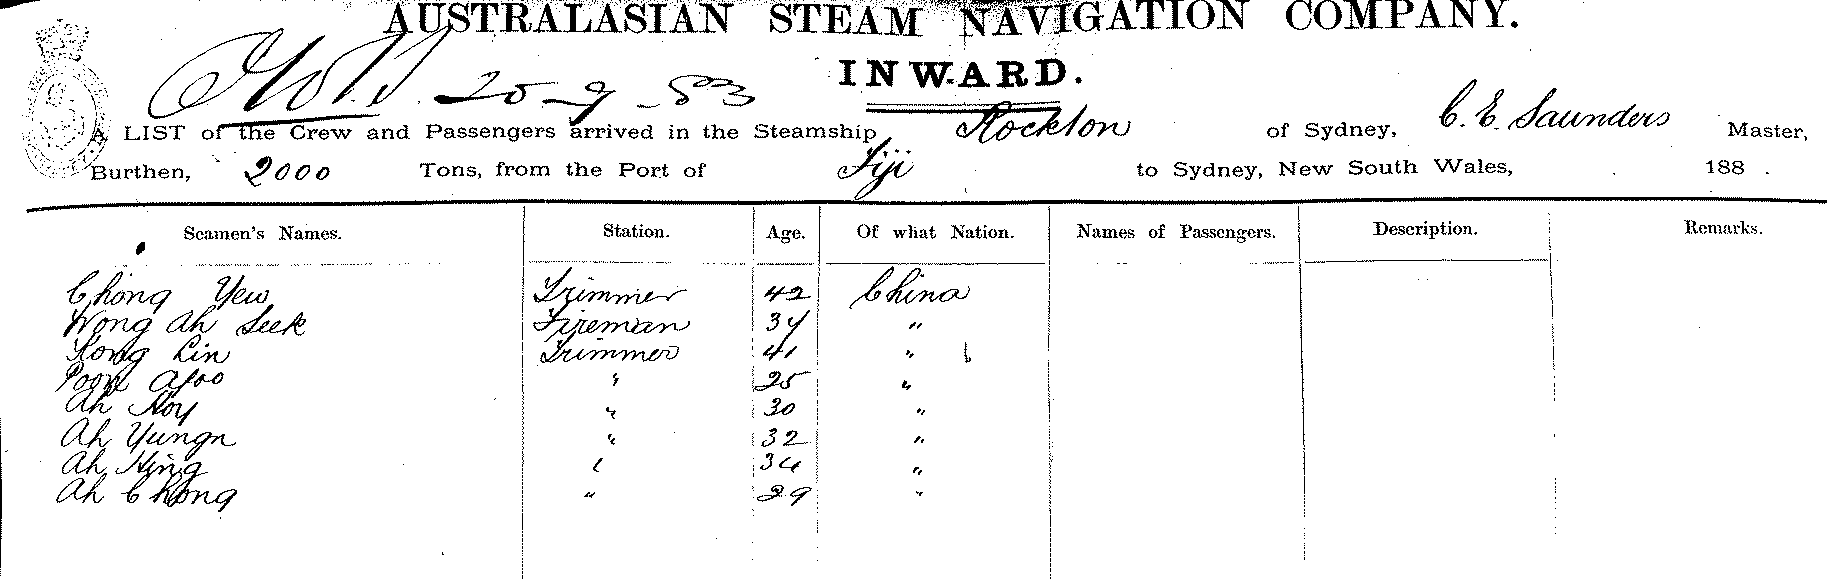 AUSTRALASIAN STEAM NAVIGATION COMPANY.
INWARD.
25-9-83
A LIST of the Crew and Passengers arrived in the Steamship Rockton of Sydney, C. E. Saunders Master,
Burthen, 2000 Tons, from the Port of Fiji to Sydney, New South Wales, 188 .
Seamen's Names. Station. Age. Of what Nation. Names of Passengers. Description. Remarks.
Chong Yew Trimmer 42 China
Wong Ah Seek Fireman 34 "
Kong Lin Trimmer 41 "
" 25 "
Ah Hoy " 30 "
Ah Yungn " 32 "
Ah Hing " 34 "
Ah Chong " 29 "